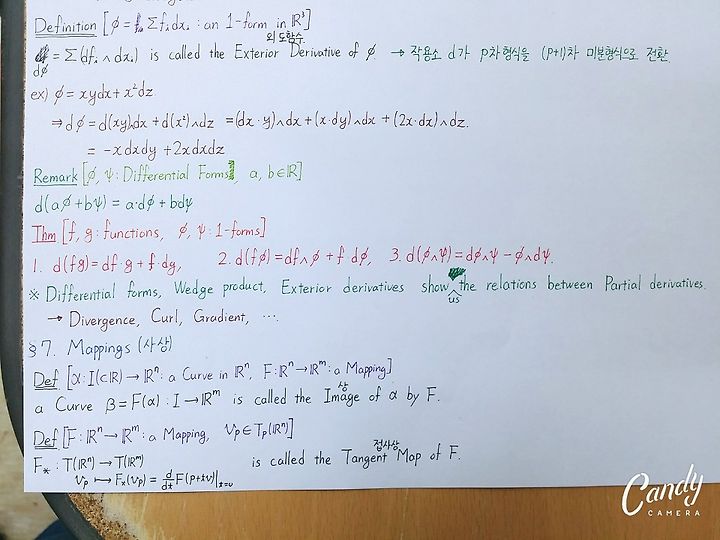 Definition [ϕ = Σfᵢdxᵢ : an 1-form in ℝ³]
외도함수
dϕ = Σ(dfᵢ ∧ dxᵢ) is called the Exterior Derivative of ϕ. → 작용소 d가 p차형식을 (p+1)차 미분형식으로 전환
ex) ϕ = xydx + x²dz.
⇒ dϕ = d(xy)∧dx + d(x²)∧dz = (dx·y)∧dx + (x·dy)∧dx + (2x·dx)∧dz.
= -xdxdy + 2xdxdz
Remark [ϕ, ψ : Differential Forms, a, b∈ℝ]
d(aϕ + bψ) = a·dϕ + bdψ
Thm [f, g : functions, ϕ, ψ : 1-forms]
1. d(fg) = df·g + f·dg, 2. d(fϕ) = df∧ϕ + f·dϕ, 3. d(ϕ∧ψ) = dϕ∧ψ - ϕ∧dψ.
※ Differential forms, Wedge product, Exterior derivatives show us the relations between Partial derivatives.
→ Divergence, Curl, Gradient, ⋯.
§7. Mappings (사상)
Def [α : I(⊂ℝ) → ℝⁿ : a Curve in ℝⁿ, F : ℝⁿ → ℝᵐ : a Mapping]
상
a Curve β = F(α) : I → ℝᵐ is called the Image of α by F.
Def [F : ℝⁿ → ℝᵐ : a Mapping, vₚ ∈ Tₚ(ℝⁿ)]
접사상
F* : T(ℝⁿ) → T(ℝᵐ) is called the Tangent Map of F.
vₚ ↦ F*(vₚ) = d/dt F(p+tv)|ₜ₌₀
Candy
CAMERA